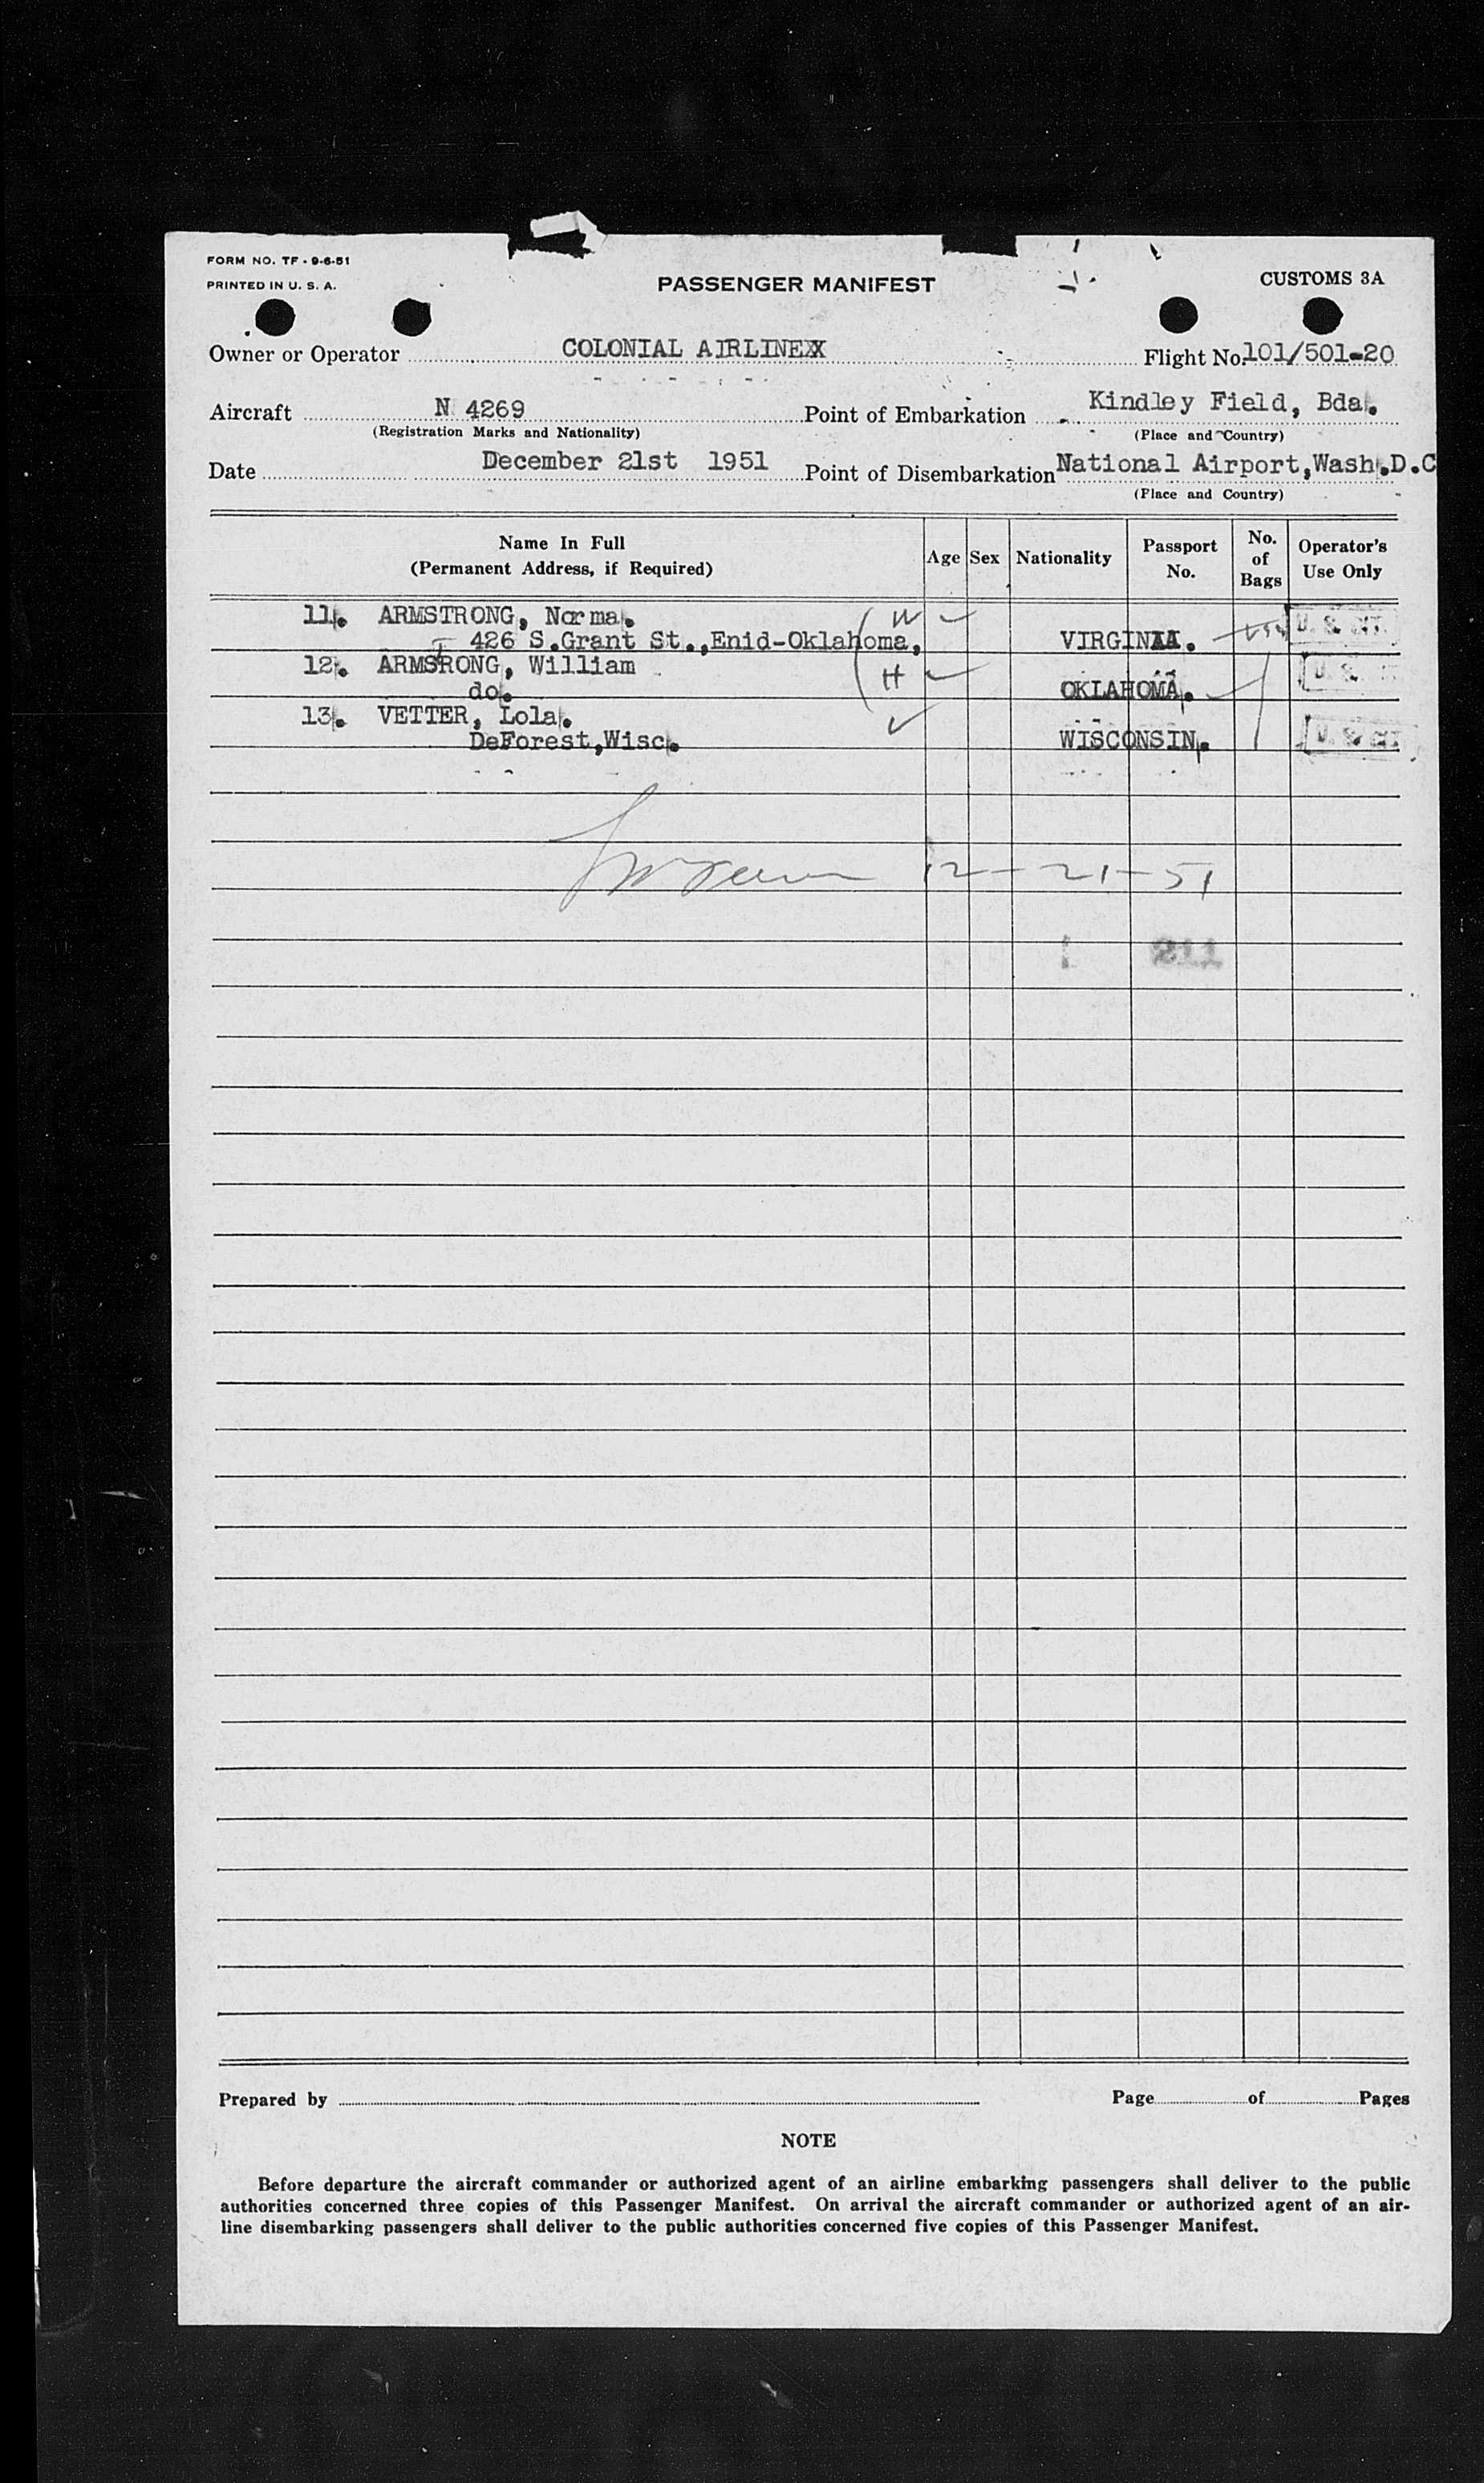 FORM NO. TF - 9-6-51
PRINTED IN U. S. A.
PASSENGER MANIFEST
CUSTOMS 3A
Owner or Operator COLONIAL AIRLINEXX Flight No. 101/501-20
Aircraft N 4269 Point of Embarkation Kindley Field, Bda.
(Registration Marks and Nationality) (Place and Country)
Date December 21st 1951 Point of Disembarkation National Airport,Wash.D.C
(Place and Country)
Name In Full (Permanent Address, if Required) Age Sex Nationality Passport No. No. of Bags Operator's Use Only
11. ARMSTRONG, Norma. W
426 S.Grant St.,Enid-Oklahoma, VIRGINIA. U. S. CIT.
12. ARMSRONG, William H U. S.
T
do. OKLAHOMA.
13. VETTER, Lola.
DeForest,Wisc. WISCONSIN. U. S. CIT
12-21-51
211
Prepared by Page of Pages
NOTE
Before departure the aircraft commander or authorized agent of an airline embarking passengers shall deliver to the public
authorities concerned three copies of this Passenger Manifest. On arrival the aircraft commander or authorized agent of an air-
line disembarking passengers shall deliver to the public authorities concerned five copies of this Passenger Manifest.